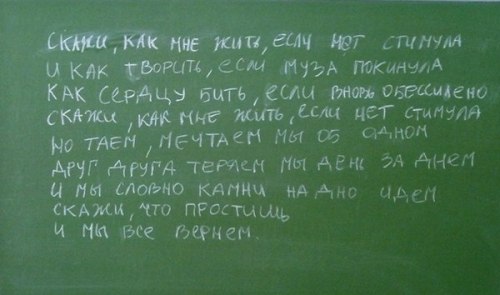 Скажи, как мне жить, если нет стимула
и как творить, если муза покинула
как сердцу бить, если вновь обессилено
скажи, как мне жить, если нет стимула
но таем, мечтаем мы об одном
друг друга теряем мы день за днем
и мы словно камни на дно идем
скажи, что простишь
и мы все вернем.